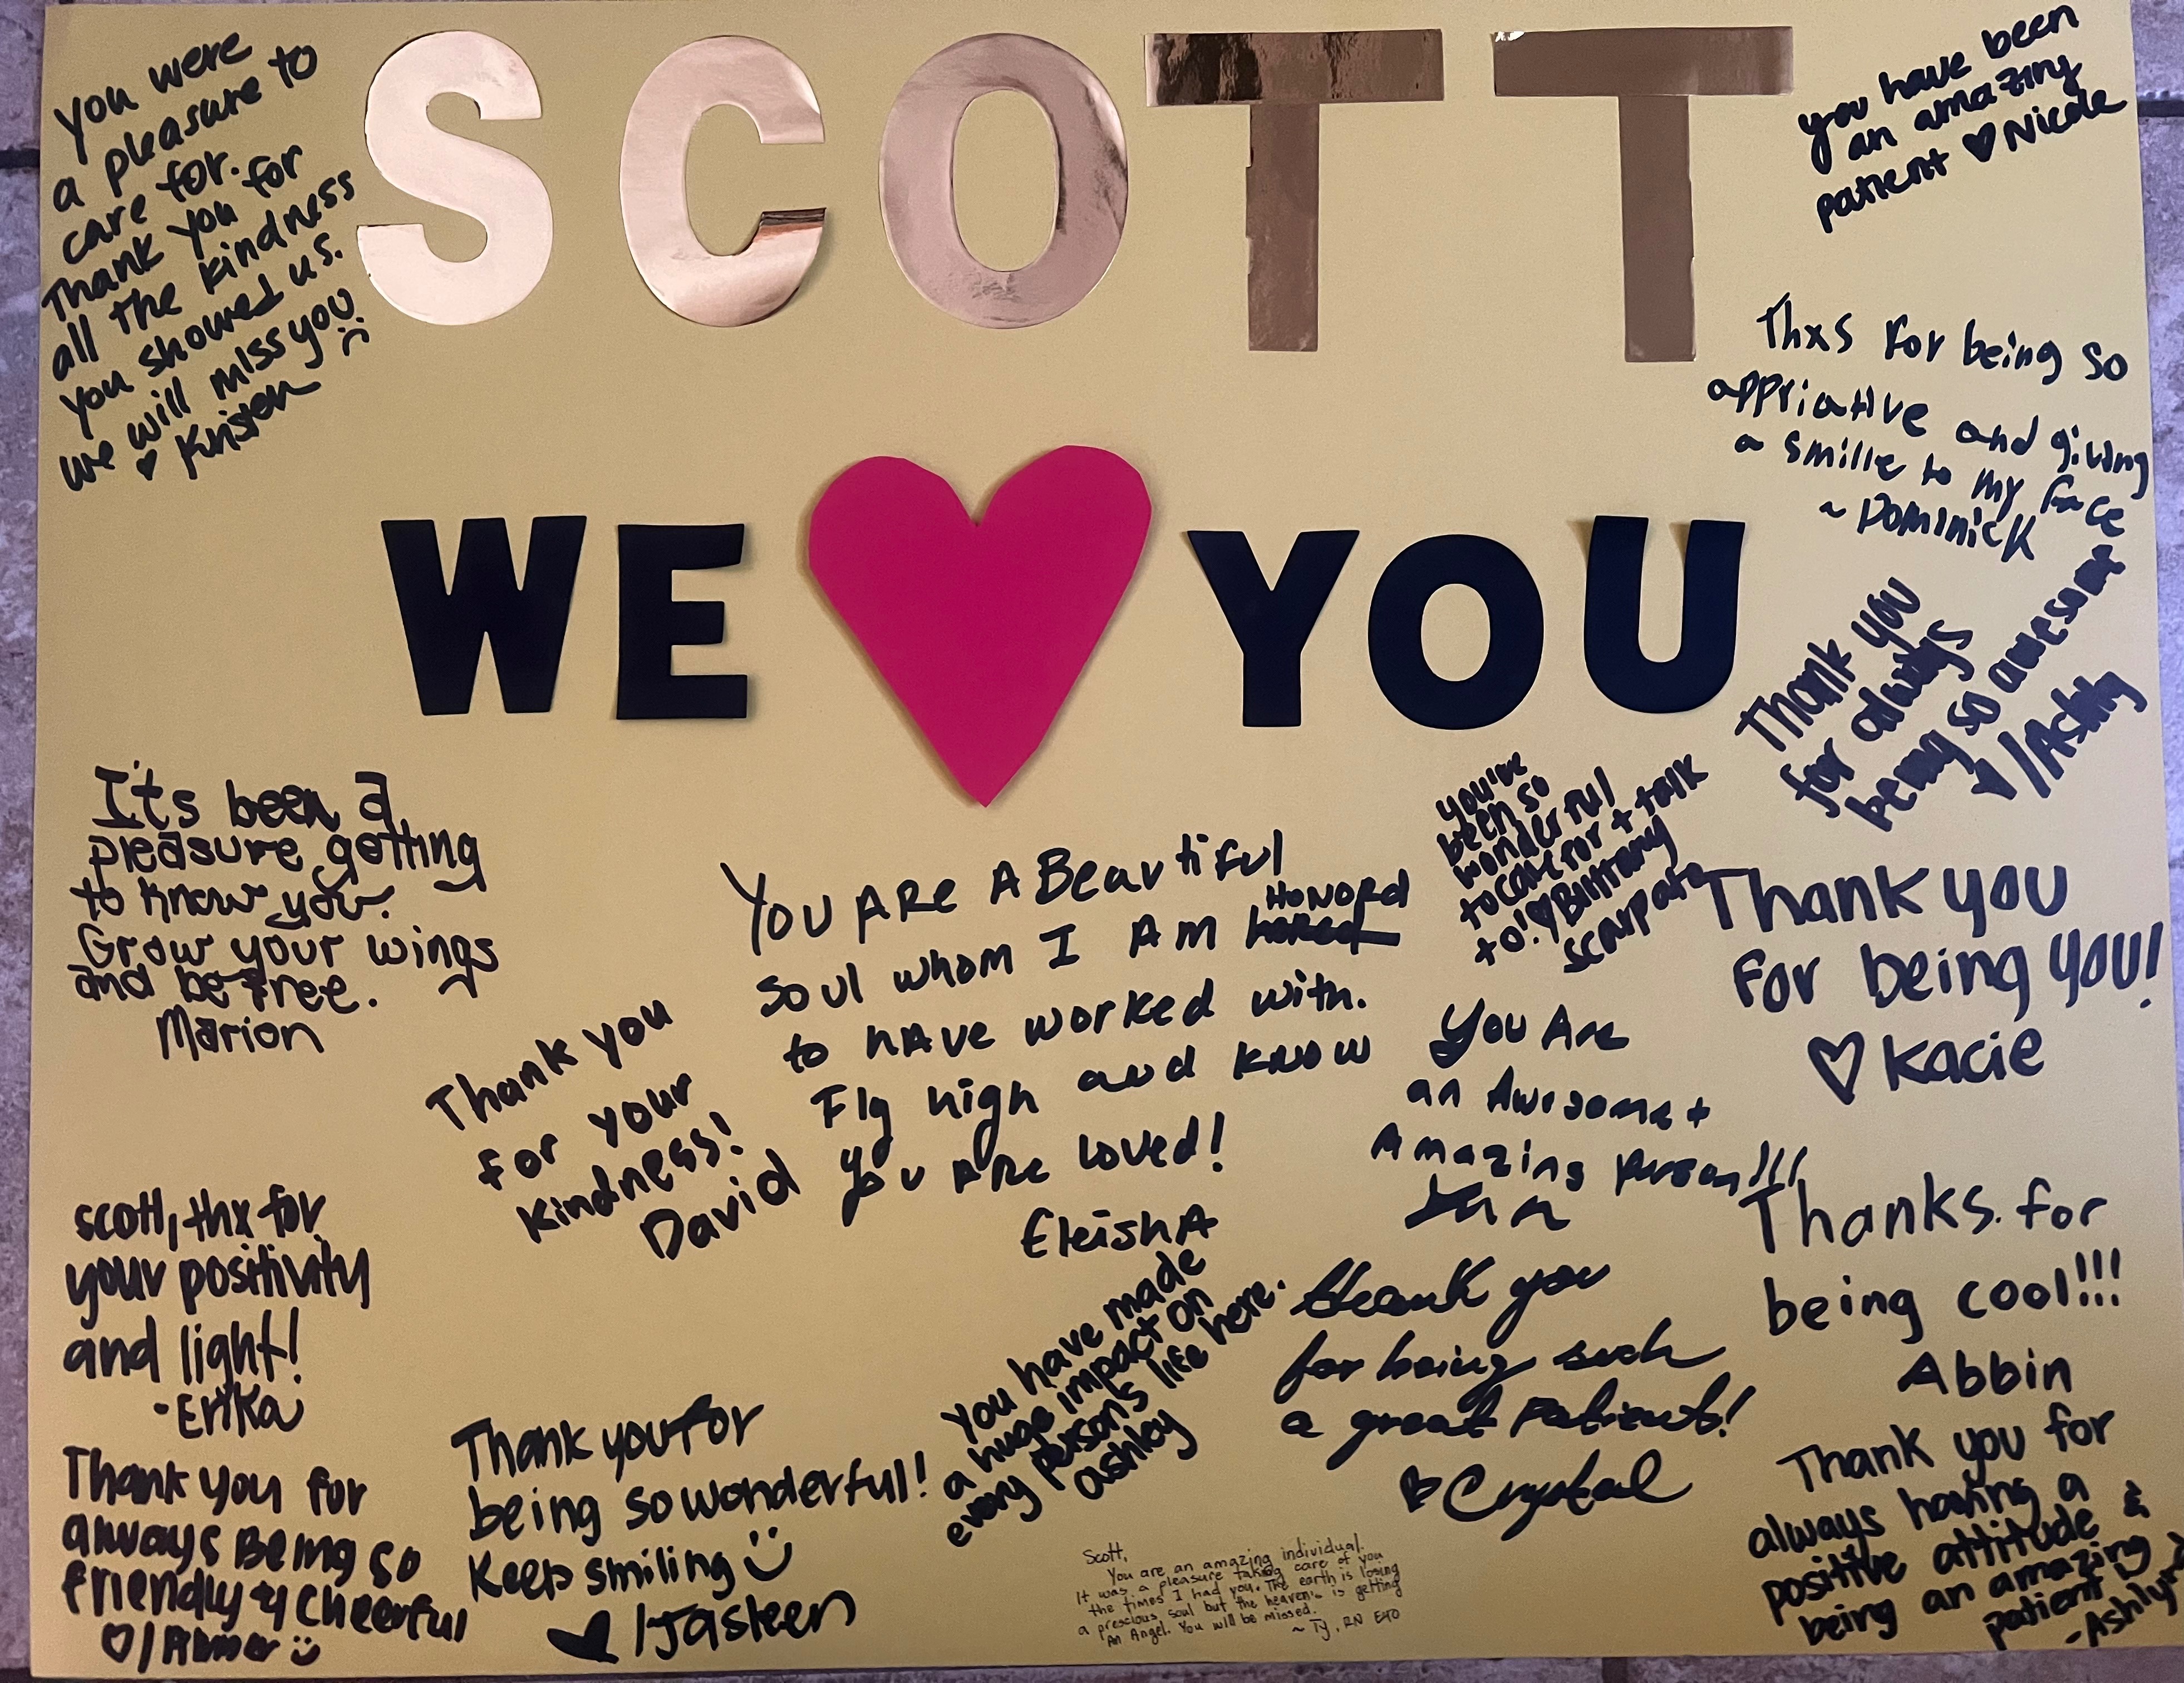 SCOTT
WE YOU
You were
a pleasure to
care for.
Thank you for
all the kindness
you showed us.
we will miss you
Kristen
you have been
an amazing
patient Nicole
Thxs for being so
appriative and giving
a smille to my face
~ Dominick
Thank you
for always
being so awesome
/Ashly
you've
been so
wonderful
to care for + talk
to! Brittany
Scarpato
It's been a
pleasure getting
to know you.
Grow your wings
and be free.
Marion
You ARe A Beautiful
HONORd
soul whom I Am
to hAve worked with.
Fly high and know
you ARe loved!
EleishA
Thank you
for being YOU!
Kacie
Thank you
for your
kindness!
David
You Are
an Awesome +
Amazing person!!!
scott, thx for
your positivity
and light!
-Erika
You have made
a huge impact on
every person's life here.
ashley
thank you
for being such
a great Patient!
Crystal
Thanks for
being cool!!!
Abbin
Thank you for
always Being so
friendly & cheerful
Thank you for
being so wonderful!
Keep smiling
/Jasleen
Scott,
You are an amazing individual.
It was a pleasure taking care of you
the times I had you. The earth is losing
a prescious soul but the heaven's is getting
An Angel. You will be missed.
~ Ty, RN
Thank you for
always having a
positive attitude &
being an amazing
patient
-Ashly